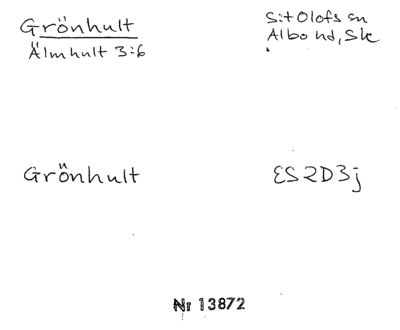 Grönhult
Älmhult 3:6
S:t Olofs sn
Albo hd, Sk
Grönhult
ES2D3j
Nr 13872